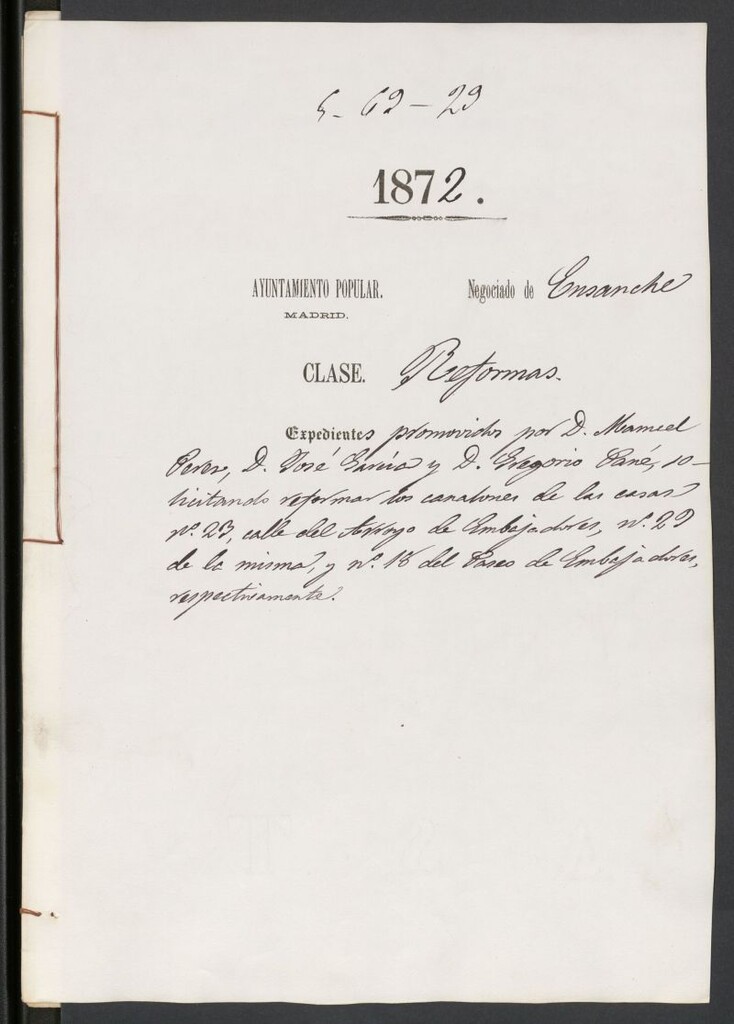 5-69-29
1872.
AYUNTAMIENTO POPULAR.
MADRID.
Negociado de Ensanche
CLASE. Reformas.
Expedientes promovidos por D. Manuel
Perez, D. José García y D. Gregorio Pané, so-
licitando reformar los canalones de las casas
nº. 27, calle del Arroyo de Embajadores, nº. 29
de la misma, y nº. 18 del Paseo de Embajadores,
respectivamente.